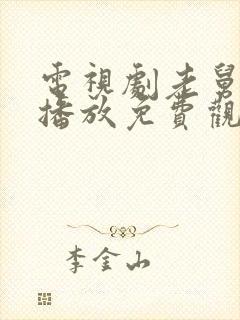 電視劇老舅
播放免費觀
李金山